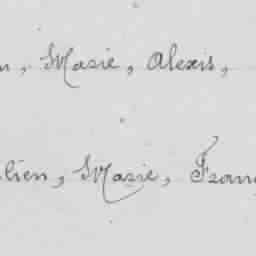 n, Marie, Alexis,
lien, Marie, Fran